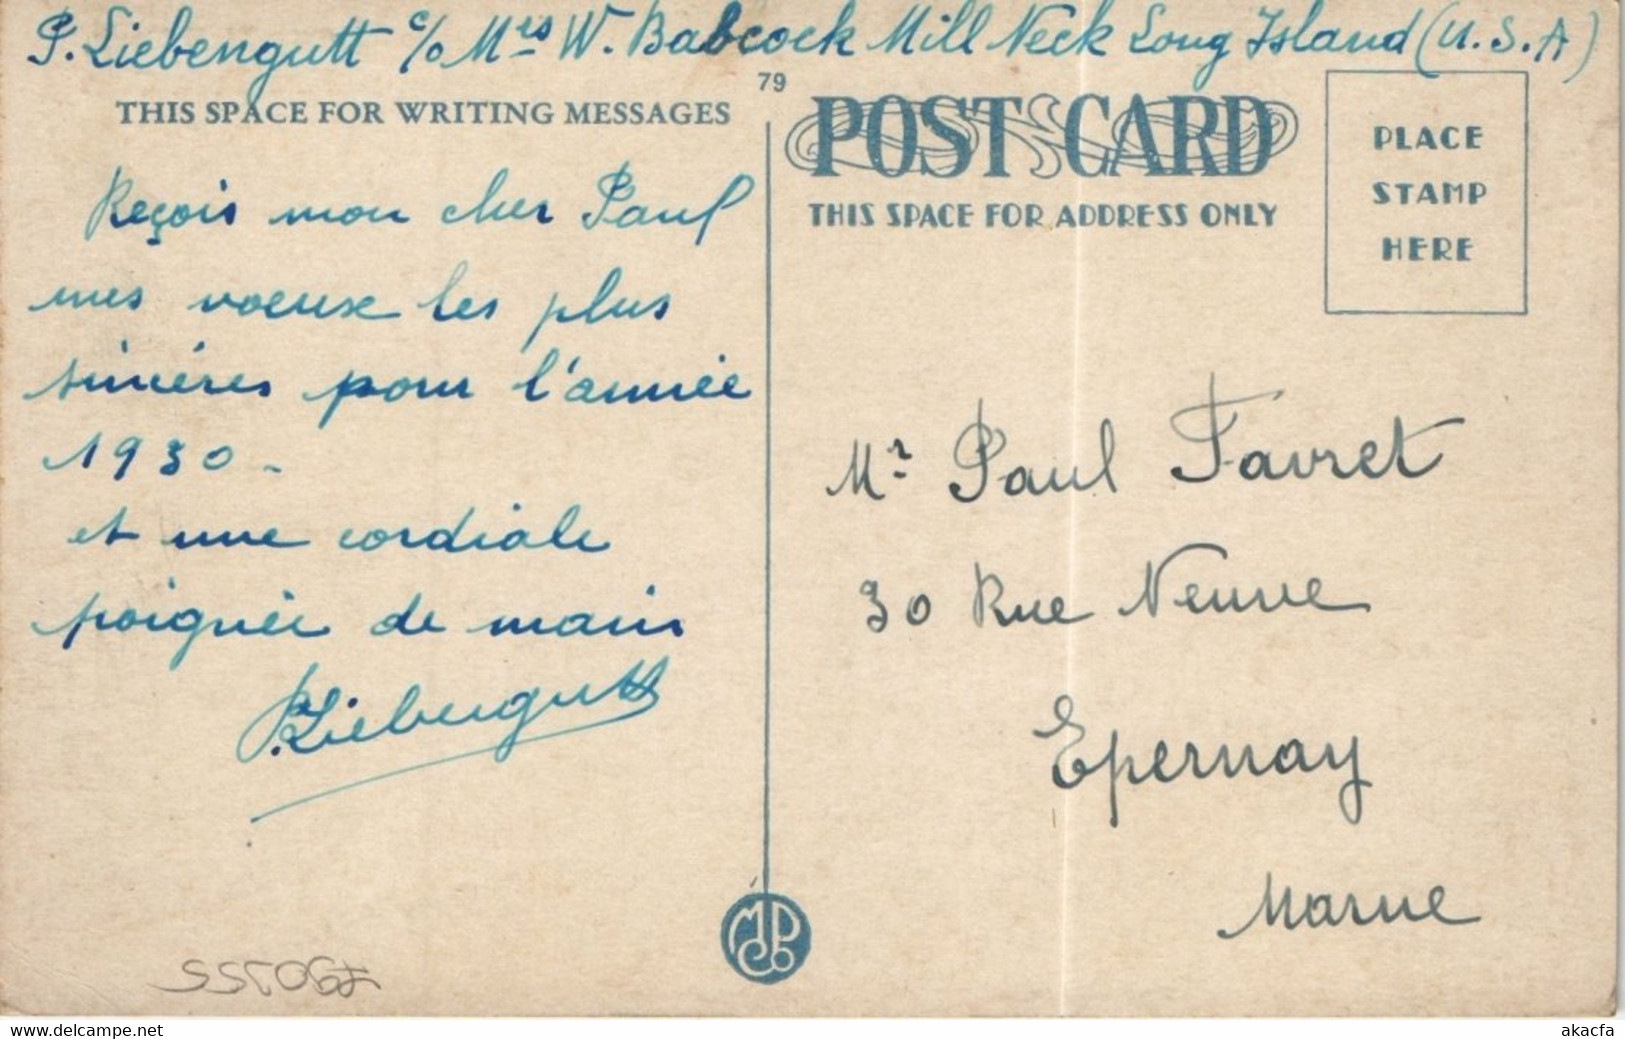 P. Liebengutt c/o Mrs W. Babcock Mill Neck Long Island (U.S.A)
79
THIS SPACE FOR WRITING MESSAGES
Reçois mon cher Paul
mes voeux les plus
sincères pour l'année
1930 -
et une cordiale
poignée de main
P. Liebengutt
POST CARD
THIS SPACE FOR ADDRESS ONLY
PLACE
STAMP
HERE
Mr Paul Favret
30 Rue Neuve
Epernay
Marne
MPCo
delcampe.net
akacfa